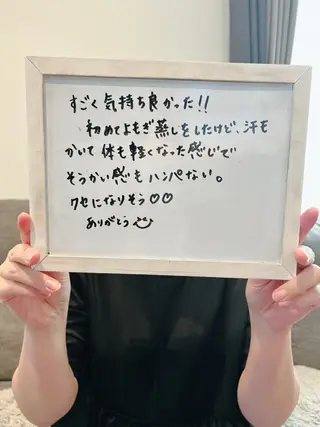 すごく気持ち良かった!!
初めてよもぎ蒸しをしたけど、汗も
かいて体も軽くなった感じで
そうかい感もハンパない。
クセになりそう♡♡
ありがとう